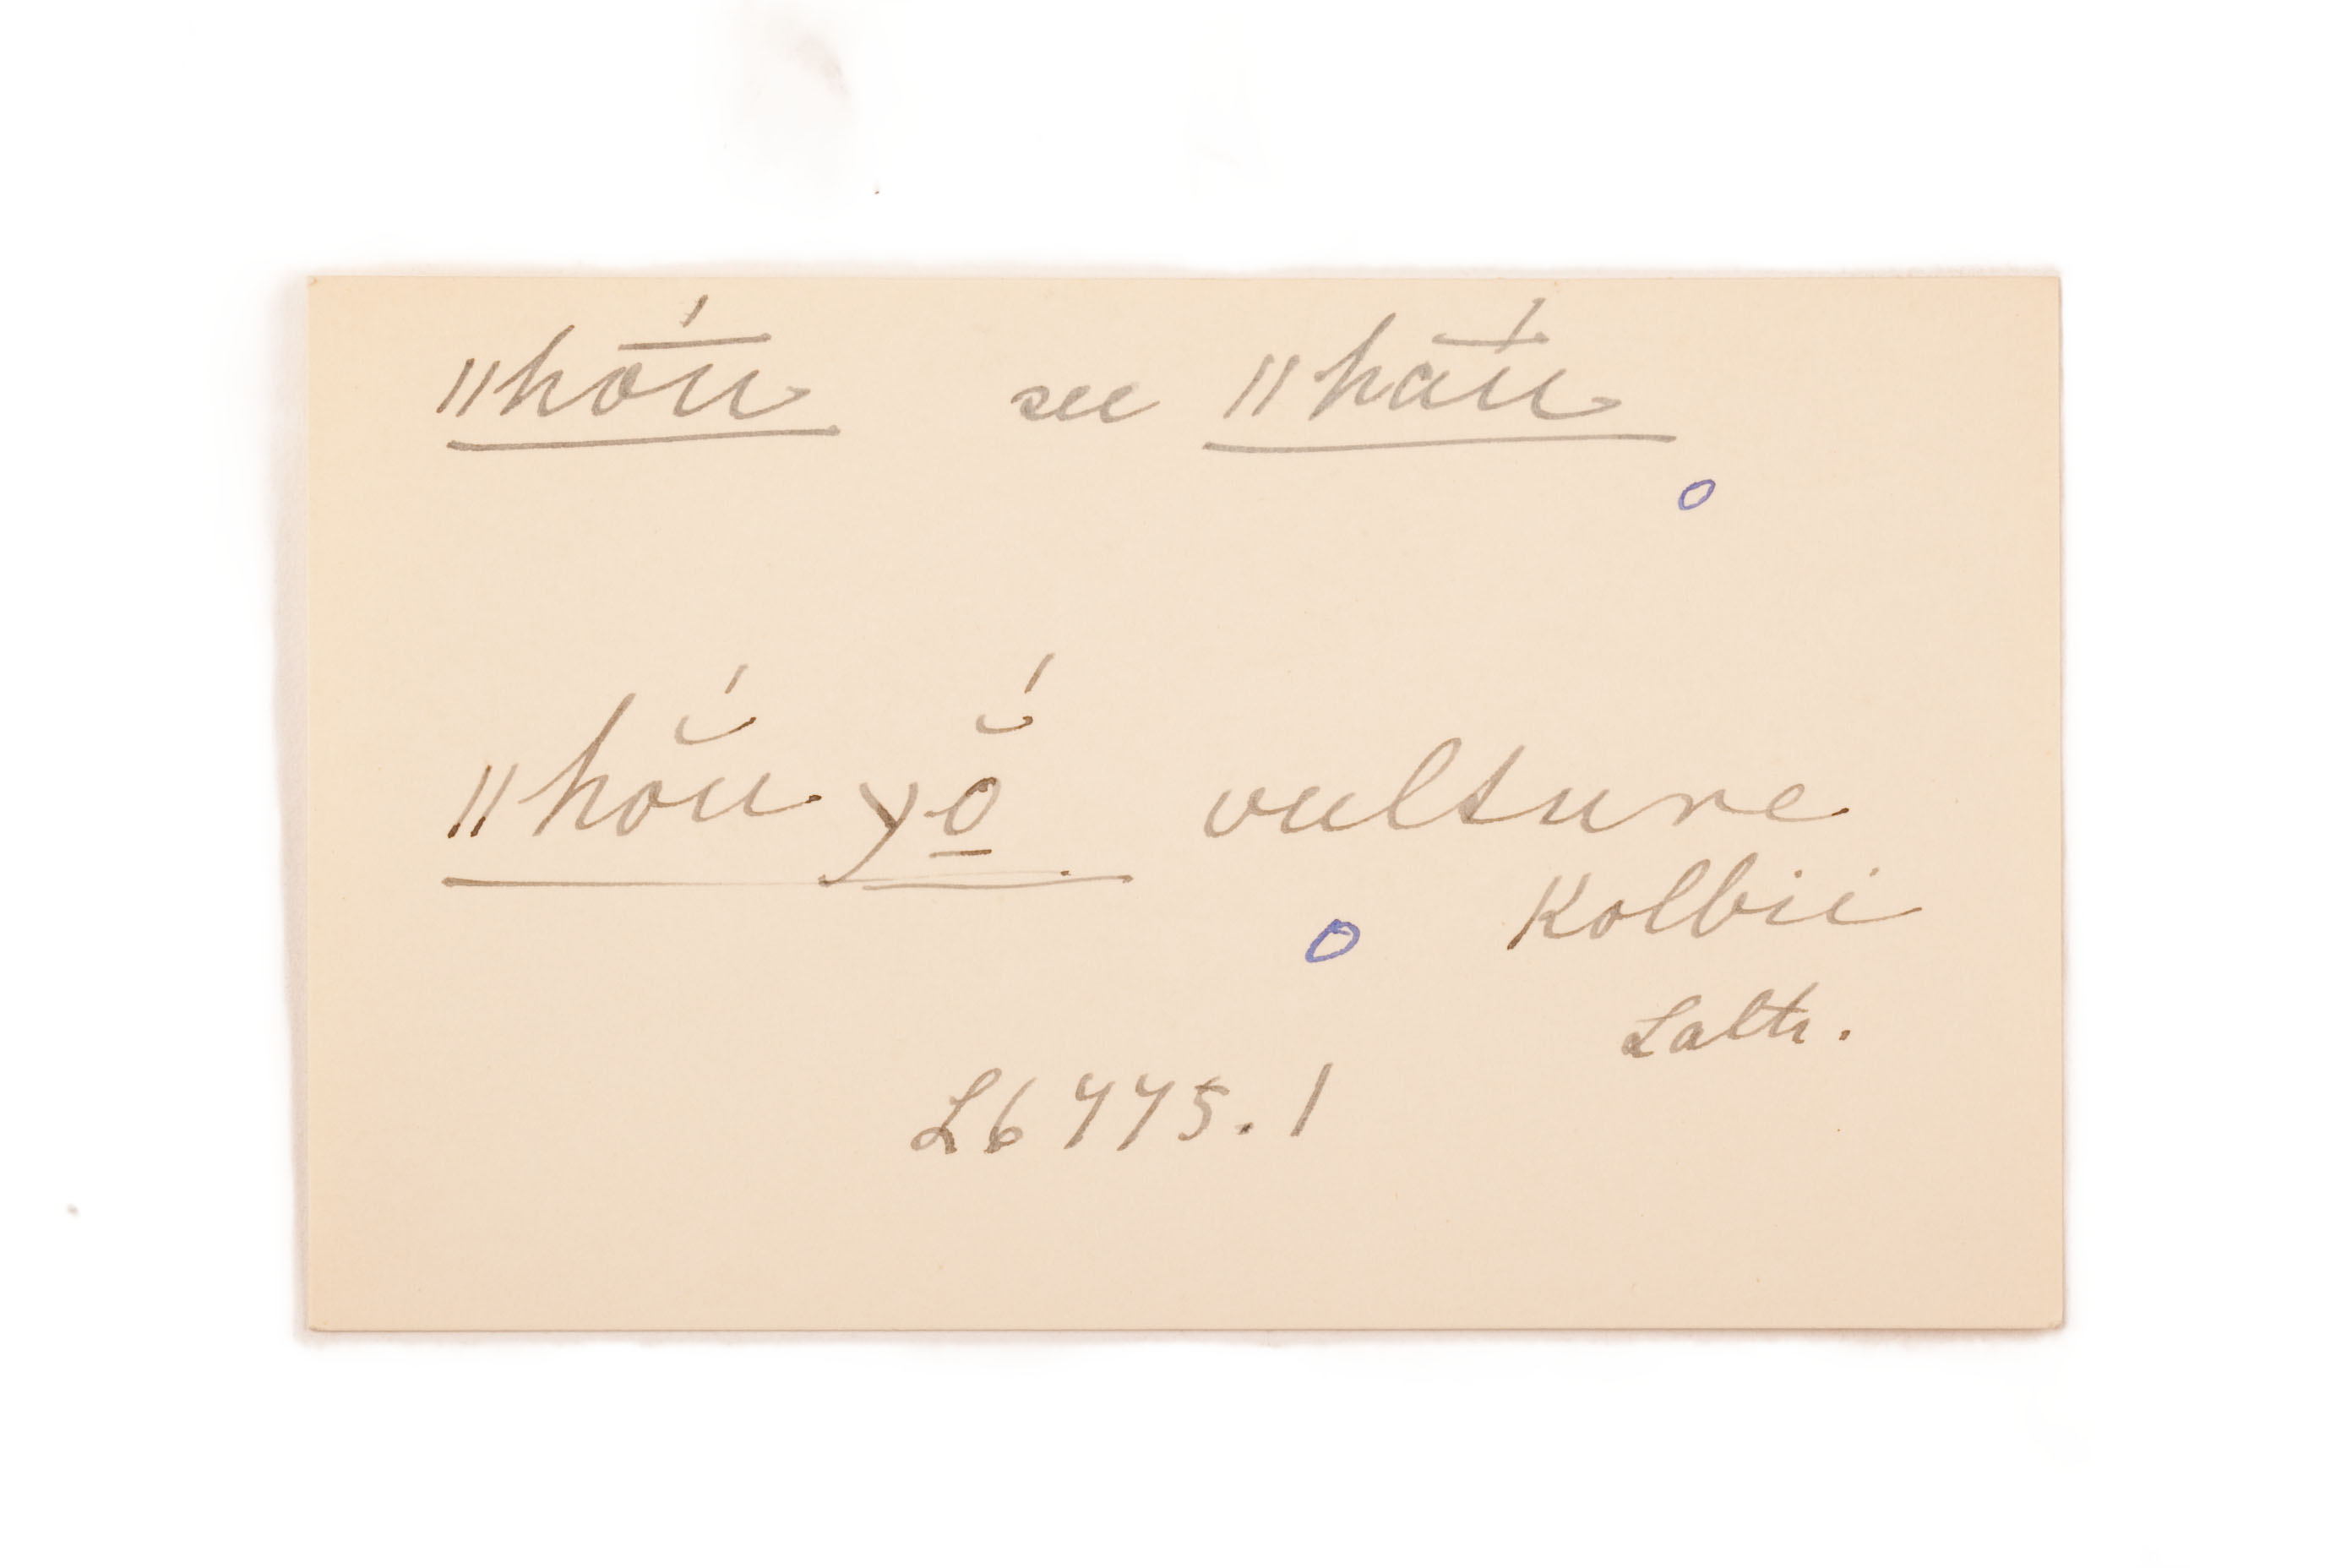 ǁho̅́u see ǁha̅́u
ǁhŏ́u yŏ̱́ vulture
Kolbii
Lath.
L6775.1